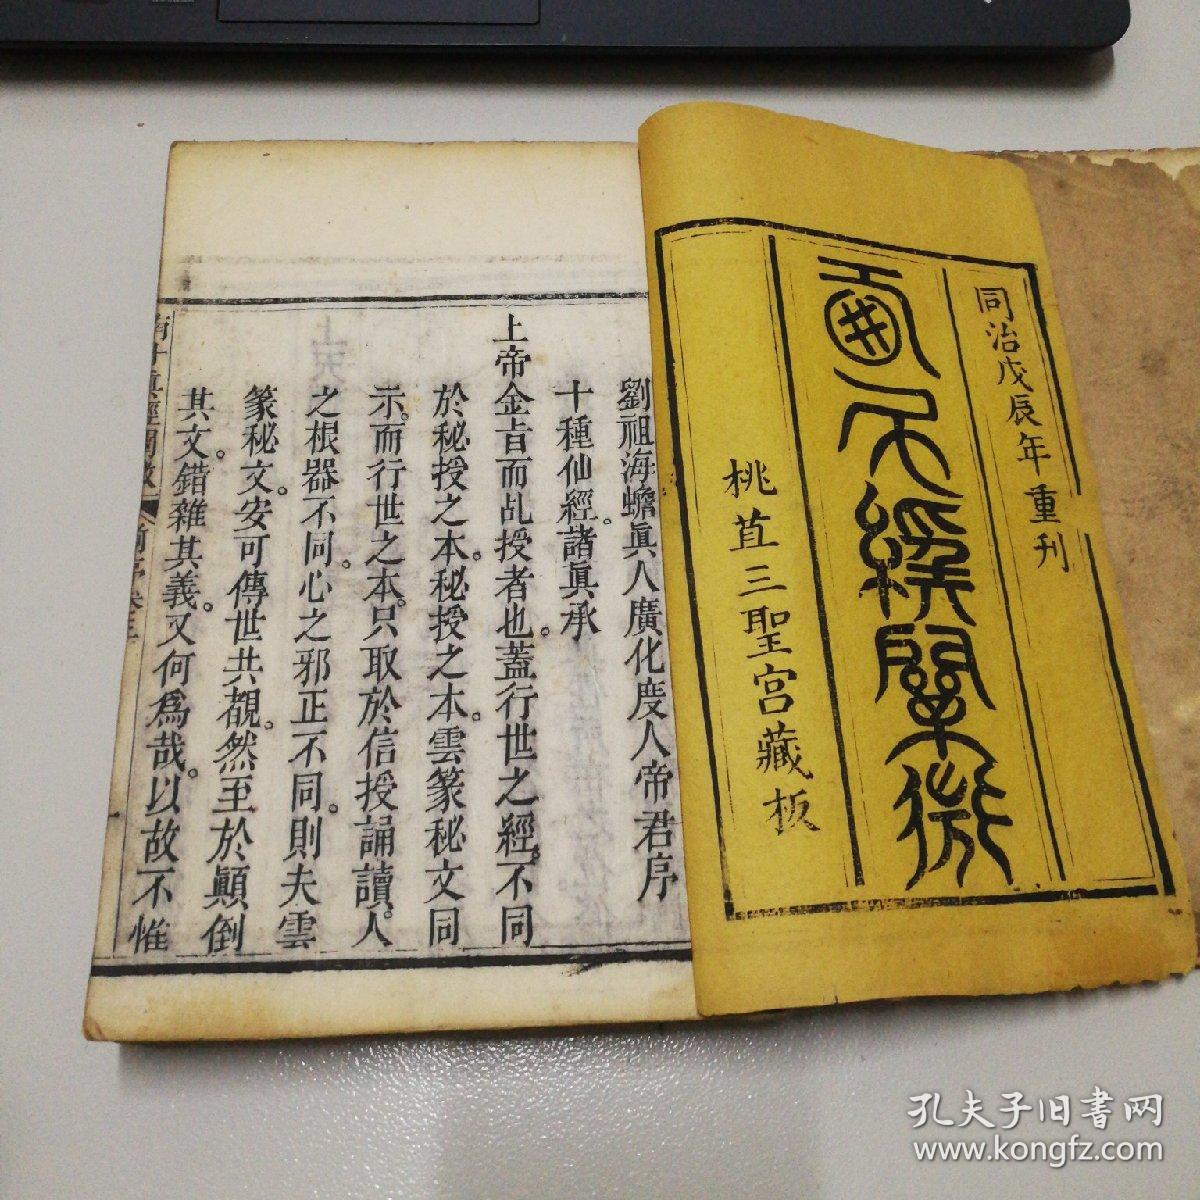 同治戊辰年重刊
經闡微
桃苴三聖宮藏板
劉祖海蟾眞人廣化度人帝君序
十種仙經。諸眞承
上帝金旨而乩授者也。蓋行世之經。不同
於秘授之本。秘授之本。雲篆秘文同
示。而行世之本。只取於信授誦讀。人
之根器不同。心之邪正不同。則夫雲
篆秘文。安可傳世共覩。然至於顚倒
其文。錯雜其義。又何爲哉。以故不惟
孔夫子旧书网
www.kongfz.com